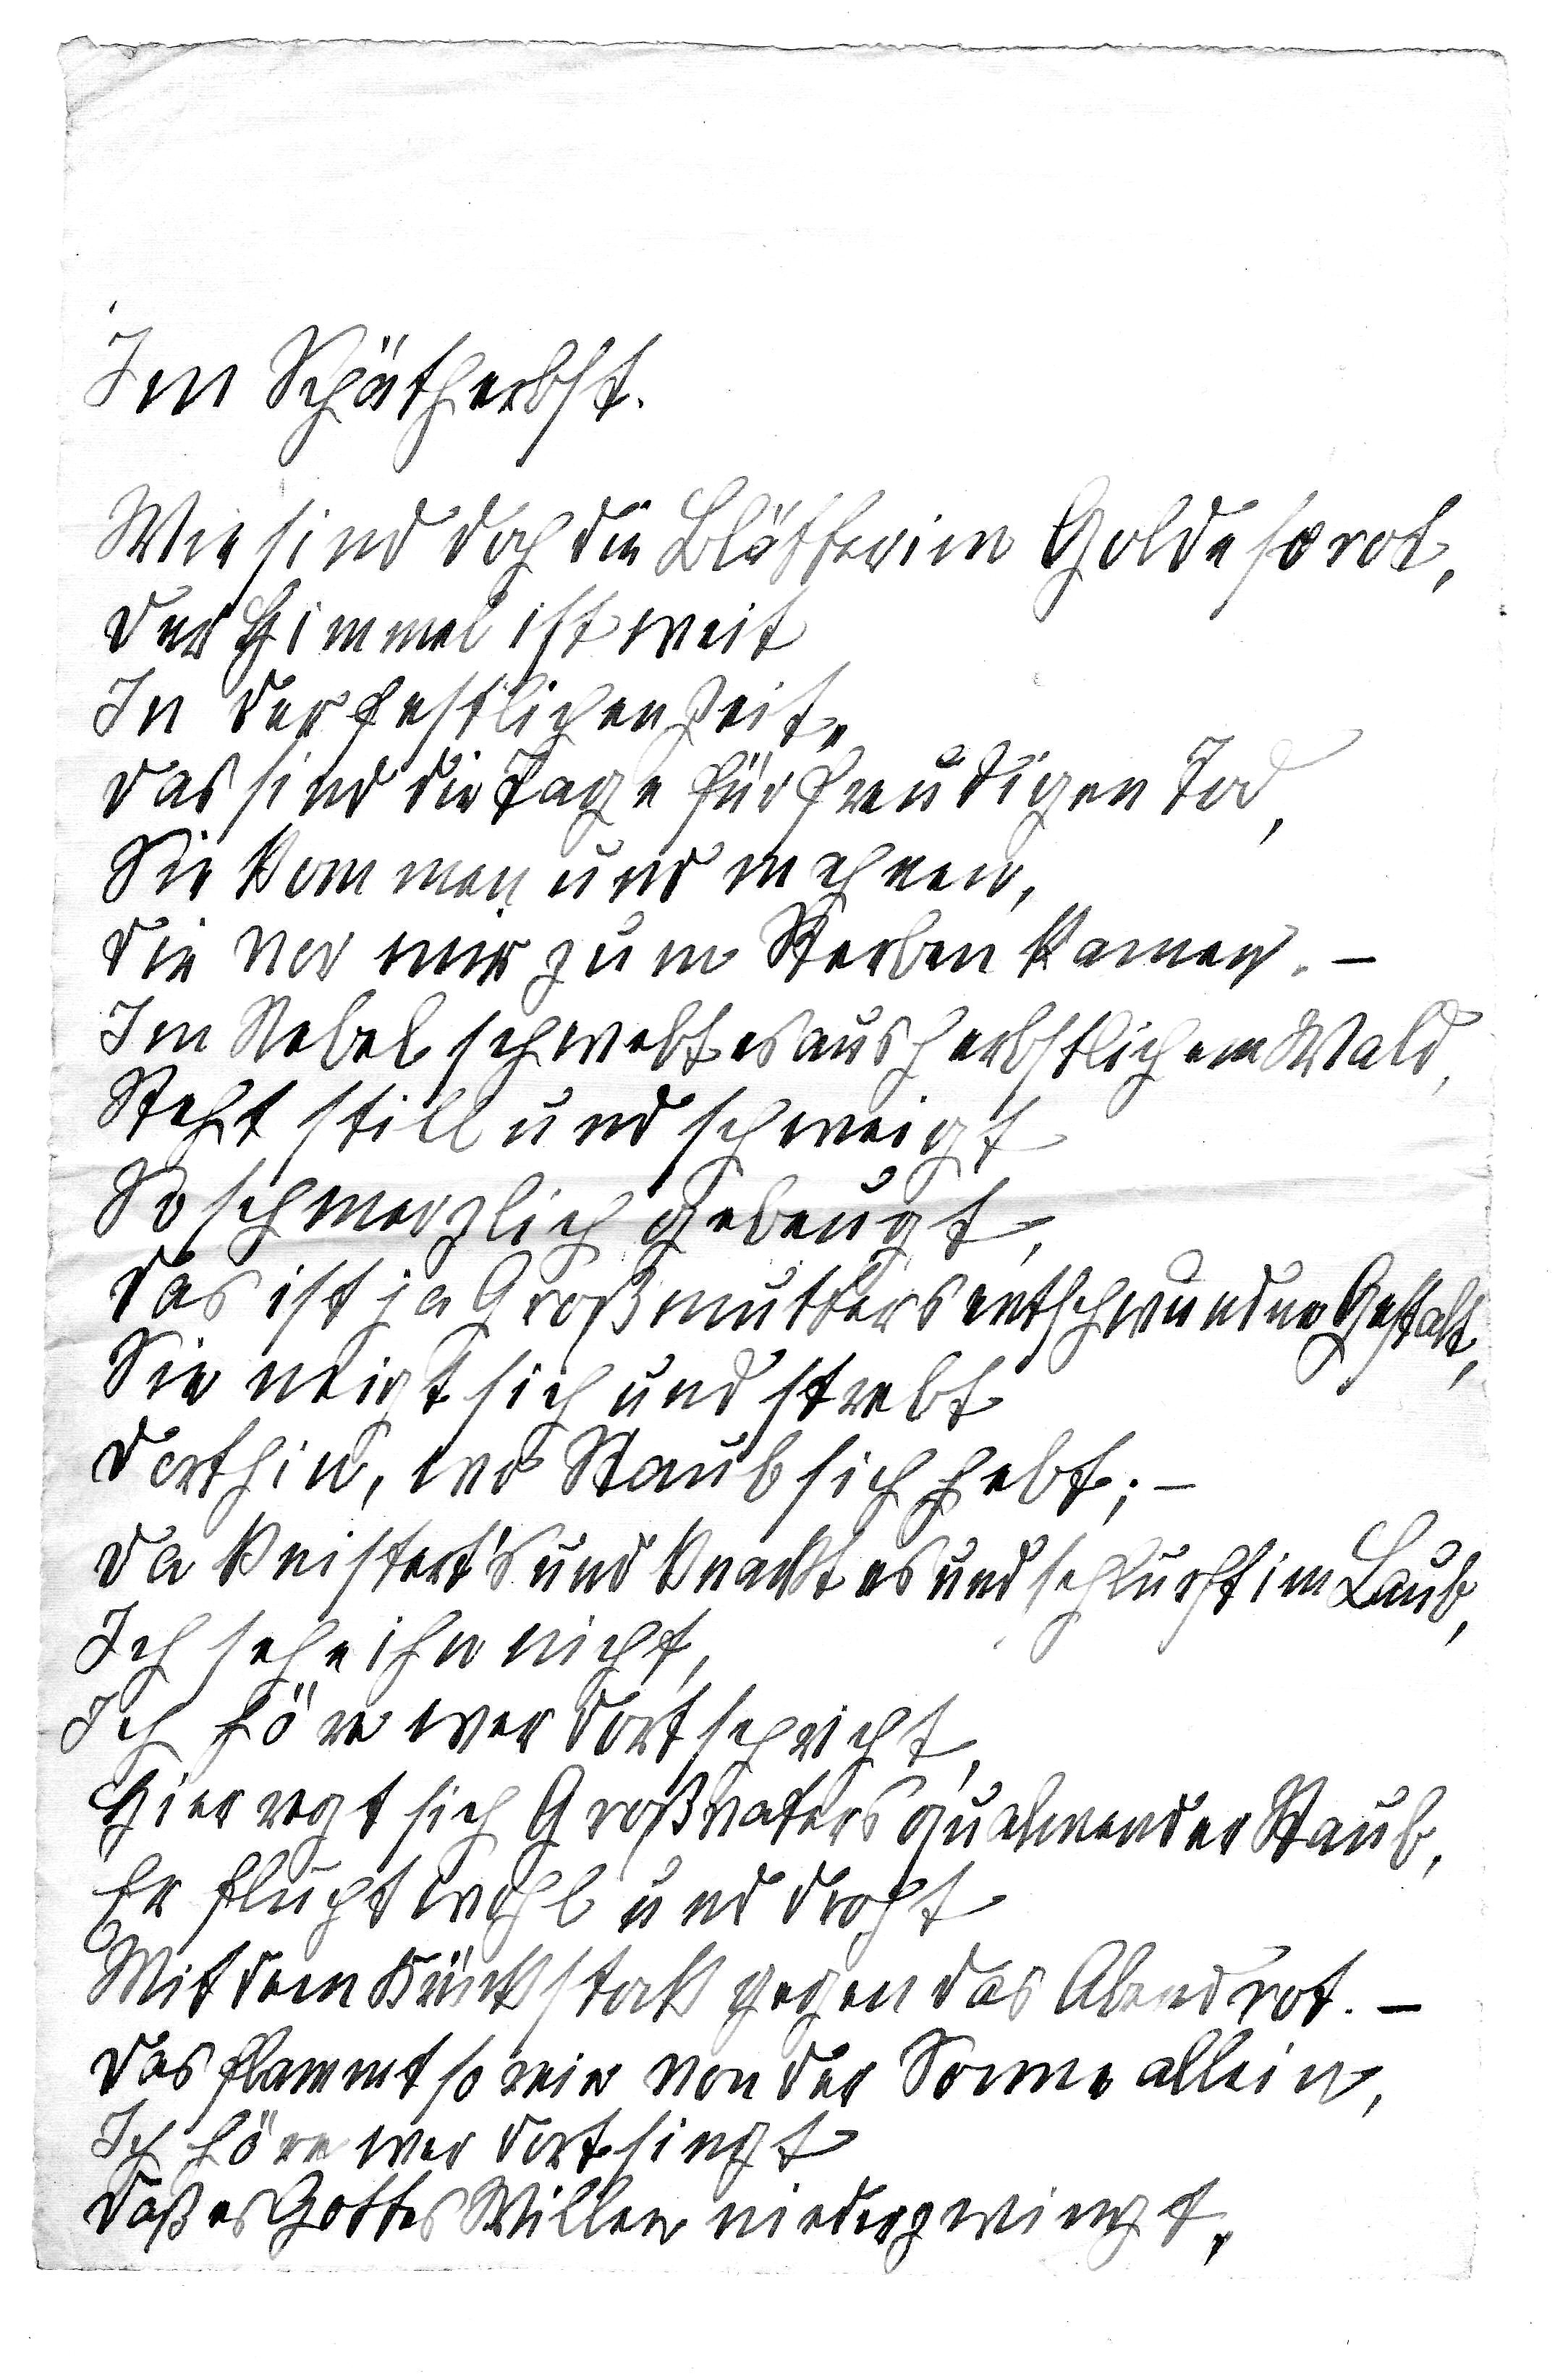 Im Spätherbst.
Wie sind doch die Blätter im Golde so rot,
Der Himmel ist weit
In der festlichen Zeit,
Das sind die Tage für freudigen Tod,
Sie kommen und mahnen,
Die vor mir zum Sterben kamen. –
Im Nebel schwebt es aus herbstlichem Wald,
Steht still und schweigt
So schmerzlich gebeugt,
Das ist ja Großmutters entschwundne Gestalt,
Sie neigt sich und strebt
Dorthin, wo Staub sich hebt; –
Da knistert's und knackt es und schlurft im Laub,
Ich sehe ihn nicht,
Ich höre wer dort spricht,
Hier regt sich Großvaters qualmender Staub,
Er flucht wohl und droht
Mit dem Krückstock gegen das Abendrot. –
Das flammt so rein von der Sonne allein,
Ich höre wer dort singt
Daß es Gottes Willen niederzwingt,